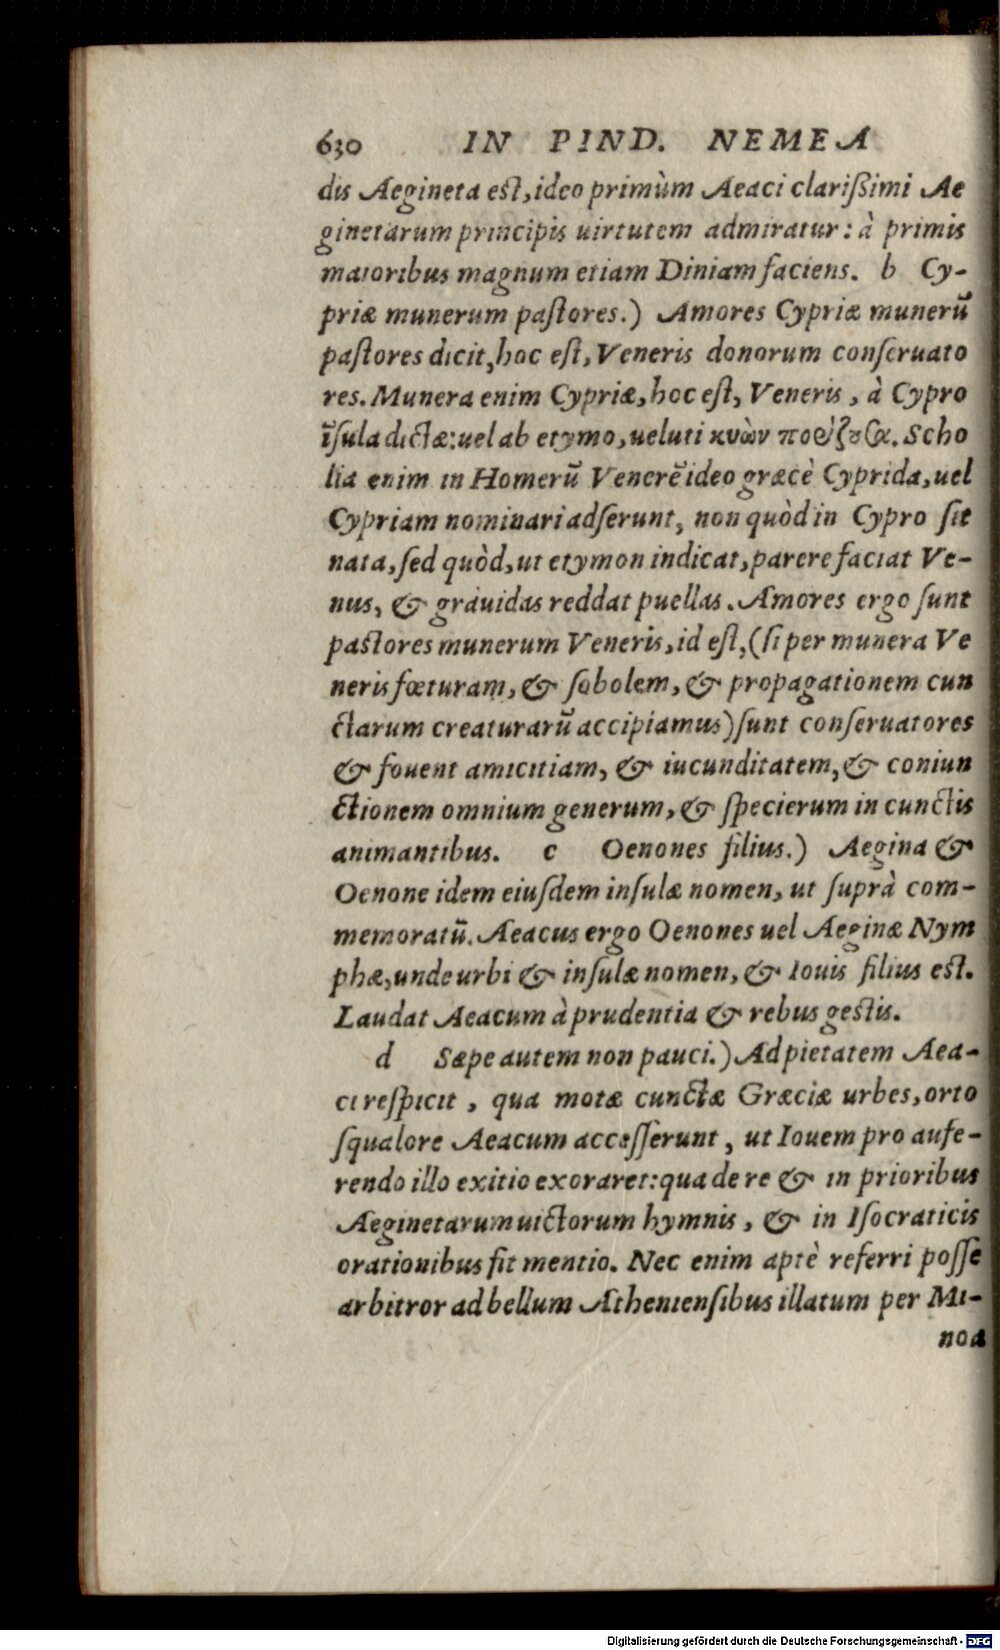 630 IN PIND. NEMEA
dis Aegineta est, ideo primùm Aeaci clarißimi Ae
ginetarum principis uirtutem admiratur: à primis
maioribus magnum etiam Diniam faciens. b Cy-
priæ munerum pastores.) Amores Cypriæ munerũ
pastores dicit, hoc est, Veneris donorum conseruato
res. Munera enim Cypriæ, hoc est, Veneris, à Cypro
ĩsula dictæ: uel ab etymo, ueluti κυὼν
Scho
lia enim in Homerũ Venerẽ ideo græcè Cyprida, uel
Cypriam nominari adserunt, non quòd in Cypro sit
nata, sed quòd, ut etymon indicat, parere faciat Ve-
nus, & grauidas reddat puellas. Amores ergo sunt
pastores munerum Veneris, id est, (si per munera Ve
neris fœturam, & sobolem, & propagationem cun
ctarum creaturarũ accipiamus) sunt conseruatores
& fouent amicitiam, & iucunditatem, & coniun
ctionem omnium generum, & specierum in cunctis
animantibus. c Oenones filius.) Aegina &
Oenone idem eiusdem insulæ nomen, ut suprà com-
memoratũ. Aeacus ergo Oenones uel Aeginæ Nym
phæ, unde urbi & insulæ nomen, & Iouis filius est.
Laudat Aeacum à prudentia & rebus gestis.
d Sæpe autem non pauci.) Ad pietatem Aea-
ci respicit, qua motæ cunctæ Græciæ urbes, orto
squalore Aeacum accesserunt, ut Iouem pro aufe-
rendo illo exitio exoraret: qua de re & in prioribus
Aeginetarum uictorum hymnis, & in Isocraticis
orationibus fit mentio. Nec enim aptè referri posse
arbitror ad bellum Atheniensibus illatum per Mi-
noa
Digitalisierung gefördert durch die Deutsche Forschungsgemeinschaft - DFG